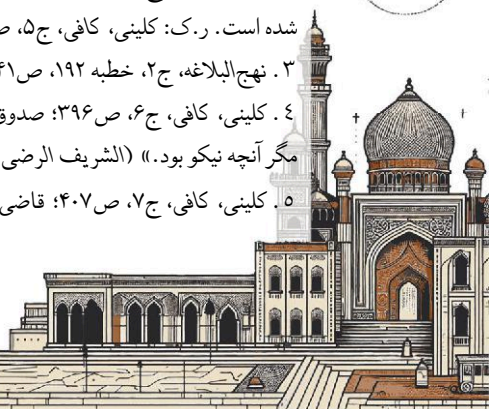 شده است. ر.ک: کلینی، کافی، ج۵، ص
۳. نهج‌البلاغه، ج۲، خطبه ۱۹۲، ص۴۱
٤. کلینی، کافی، ج۶، ص۳۹۶؛ صدوق
مگر آنچه نیکو بود.» (الشریف الرضی
٥. کلینی، کافی، ج۷، ص۴۰۷؛ قاضی